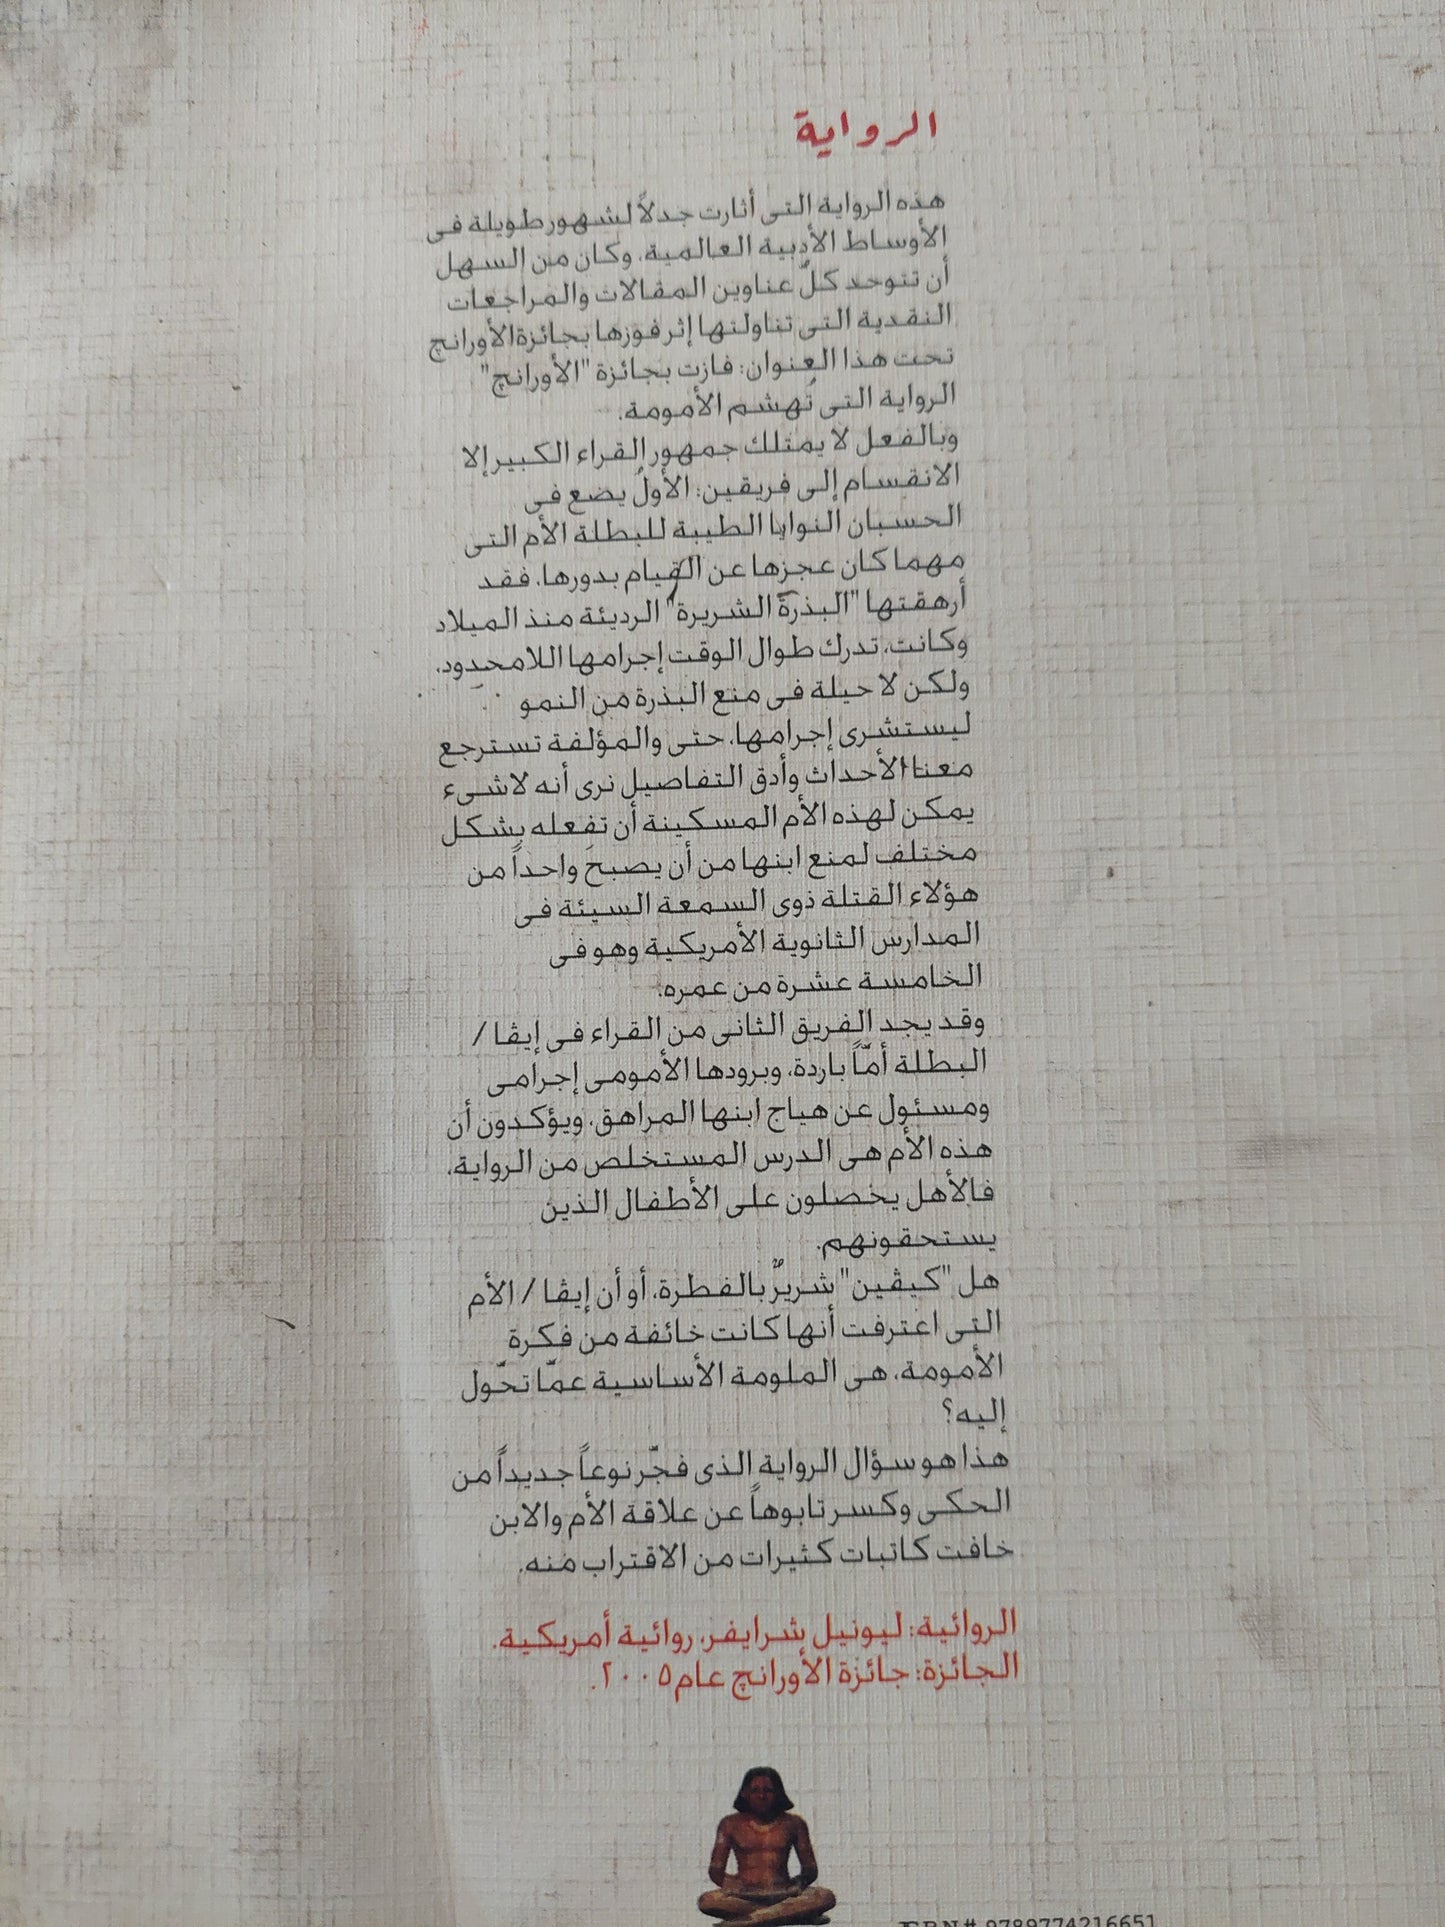 الرواية
هذه الرواية التى أثارت جدلاً لشهور طويلة فى
الأوساط الأدبية العالمية، وكان من السهل
أن تتوحد كلّ عناوين المقالات والمراجعات
النقدية التى تناولتها إثر فوزها بجائزة الأورانچ
تحت هذا العنوان: فازت بجائزة "الأورانچ"
الرواية التى تُهشم الأمومة.
وبالفعل لا يمتلك جمهور القراء الكبير إلا
الانقسام إلى فريقين: الأولُ يضع فى
الحسبان النوايا الطيبة للبطلة الأم التى
مهما كان عجزها عن القيام بدورها، فقد
أرهقتها "البذرة الشريرة" الرديئة منذ الميلاد
وكانت، تدرك طوال الوقت إجرامها اللامحدود،
ولكن لا حيلة فى منع البذرة من النمو
ليستشرى إجرامها، حتى والمؤلفة تسترجع
معنا الأحداث وأدق التفاصيل نرى أنه لاشىء
يمكن لهذه الأم المسكينة أن تفعله بشكل
مختلف لمنع ابنها من أن يصبحَ واحداً من
هؤلاء القتلة ذوى السمعة السيئة فى
المدارس الثانوية الأمريكية وهو فى
الخامسة عشرة من عمره.
وقد يجد الفريق الثانى من القراء فى إيڤا /
البطلة أمّاً باردة، وبرودها الأمومى إجرامى
ومسئول عن هياج ابنها المراهق، ويؤكدون أن
هذه الأم هى الدرس المستخلص من الرواية،
فالأهل يحصلون على الأطفال الذين
يستحقونهم.
هل "كيڤين" شريرٌ بالفطرة، أو أن إيڤا / الأم
التى اعترفت أنها كانت خائفة من فكرة
الأمومة، هى الملومة الأساسية عمّا تحّول
إليه؟
هذا هو سؤال الرواية الذى فجّر نوعاً جديداً من
الحكى وكسر تابوهاً عن علاقة الأم والابن
خافت كاتبات كثيرات من الاقتراب منه.
الروائية: ليونيل شرايفر، روائية أمريكية.
الجائزة: جائزة الأورانچ عام ٢٠٠٥.
9789774216651